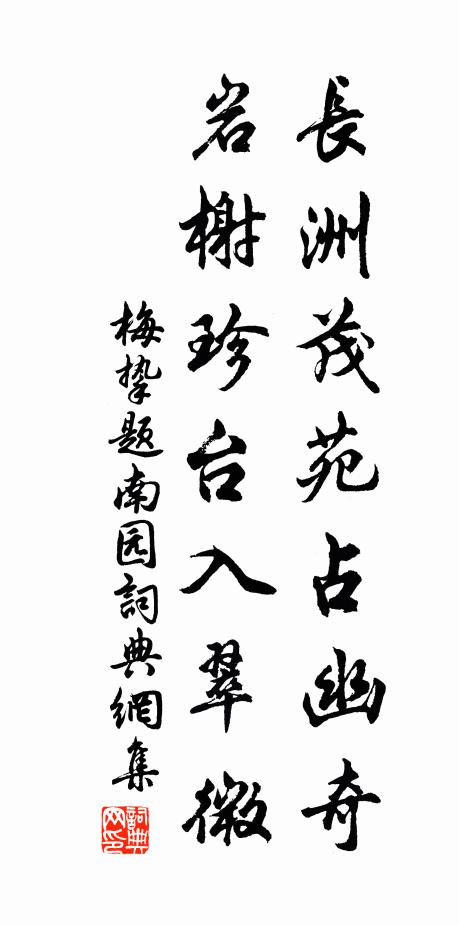 長洲茂苑占幽奇
岩榭珍台入翠微
梅挚题南园詞典網集
詞典网印